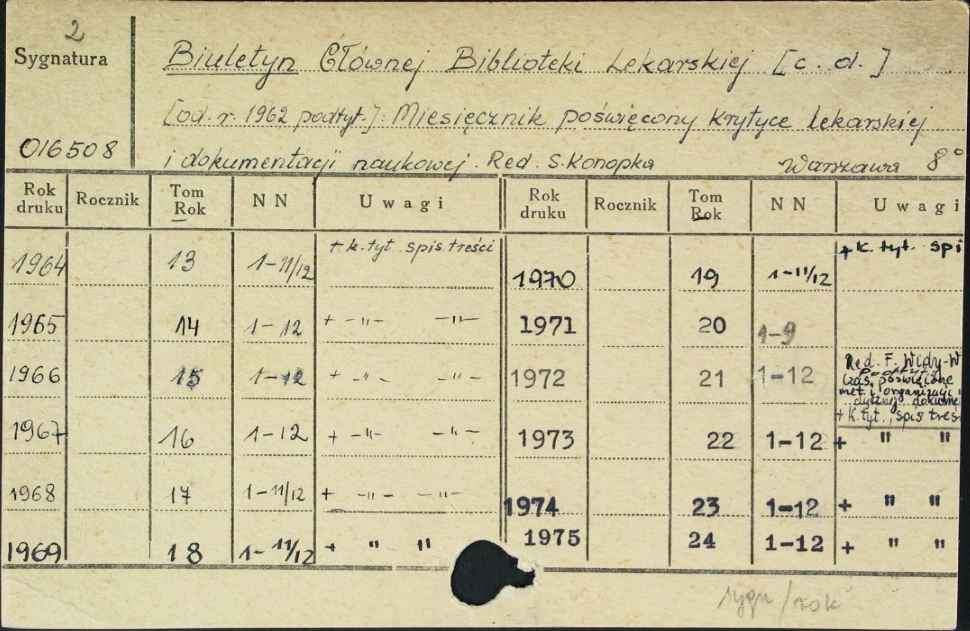 2
Sygnatura
Biuletyn Głównej Biblioteki Lekarskiej [c. d.]
[od. r. 1962 podtyt.]: Miesięcznik poświęcony krytyce lekarskiej
016508
i dokumentacji naukowej. Red. S. Konopka Warszawa 8°
Rok druku Rocznik Tom Rok NN Uwagi Rok druku Rocznik Tom Rok NN Uwagi
1964 13 1-11/12 + k. tyt. spis. treści 1970 19 1-11/12 + k. tyt. spi
1965 14 1-12 + -"- -"- 1971 20 1-9
1966 15 1-12 + -"- -"- 1972 21 1-12 Red. F. Widy-W
czas. poświęcone
met. i organizacji
dokume
+ k. tyt., spis tres
1967 16 1-12 + -"- -"- 1973 22 1-12 + " "
1968 17 1-11/12 + -"- -"- 1974 23 1-12 + " "
1969 18 1-11/12 + " " 1975 24 1-12 + " "
sygn/rok